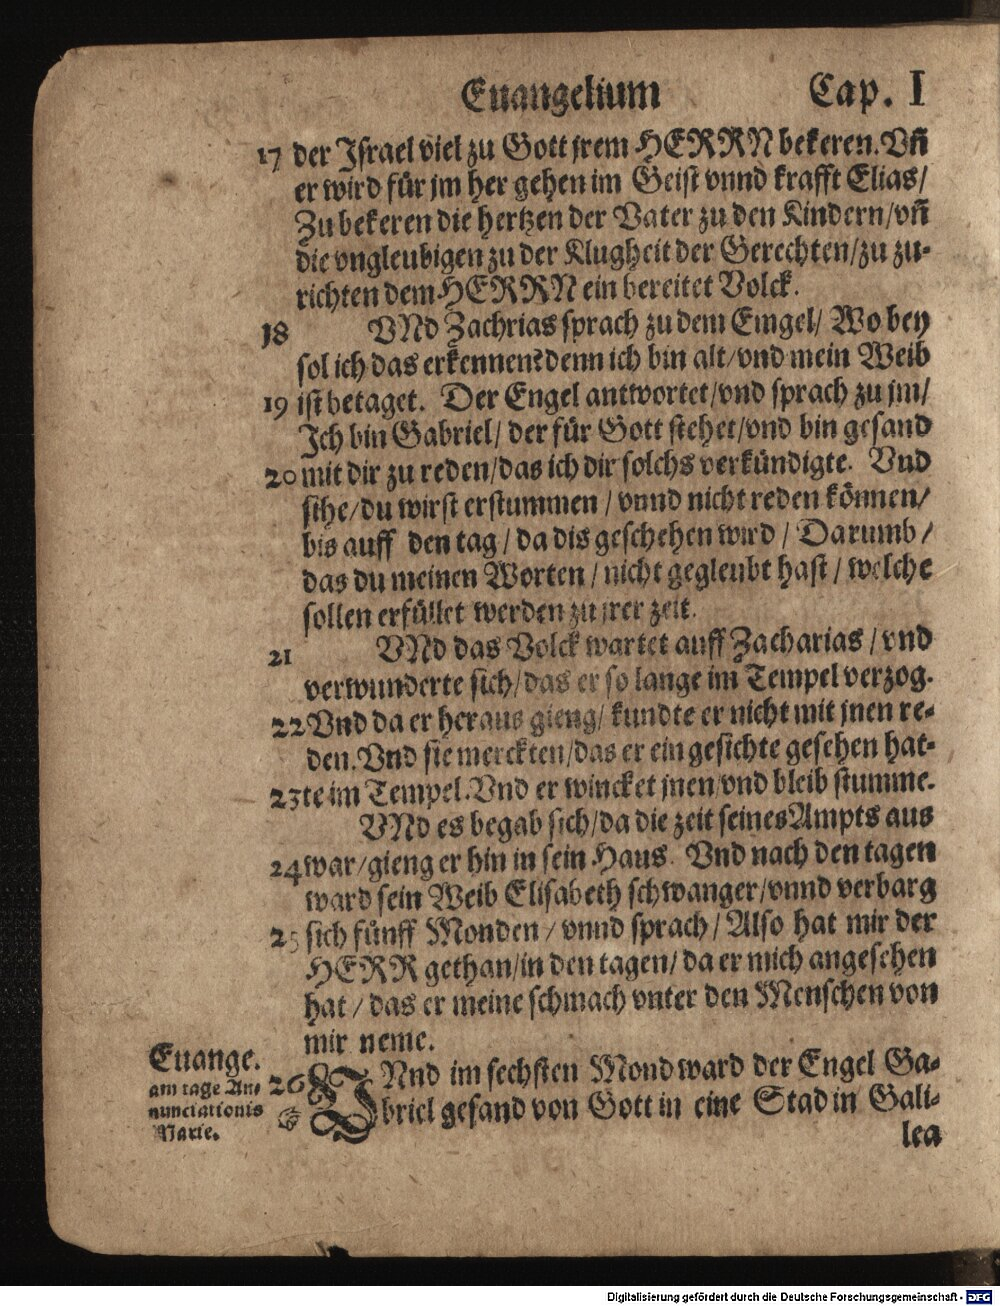 Euangelium Cap. I
17 der Israel viel zu Gott jrem HERRN bekeren. Vn̄
er wird für jm her gehen im Geist vnnd krafft Elias/
Zu bekeren die hertzen der Vater zu den Kindern/vn̄
die vngleubigen zu der Klugheit der Gerechten/zu zu-
richten dem HERRN ein bereitet Volck.
18 VNd Zachrias sprach zu dem Emgel/ Wo bey
sol ich das erkennen? denn ich bin alt/vnd mein Weib
19 ist betaget. Der Engel antwortet/vnd sprach zu jm/
Ich bin Gabriel/ der für Gott stehet/vnd bin gesand
20 mit dir zu reden/das ich dir solchs verkündigte. Vnd
sihe/du wirst erstummen / vnnd nicht reden können/
bis auff den tag / da dis geschehen wird / Darumb /
das du meinen Worten / nicht gegleubt hast / welche
sollen erfüllet werden zu jrer zeit.
21 VNd das Volck wartet auff Zacharias / vnd
verwunderte sich/das er so lange im Tempel verzog.
22 Vnd da er heraus gieng/ kundte er nicht mit jnen re-
den. Vnd sie merckten/das er ein gesichte gesehen hat-
23 te im Tempel. Vnd er wincket jnen/vnd bleib stumme.
VNd es begab sich/da die zeit seines Ampts aus
24 war/gieng er hin in sein Haus. Vnd nach den tagen
ward sein Weib Elisabeth schwanger/vnnd verbarg
25 sich fünff Monden / vnnd sprach / Also hat mir der
HERR gethan/in den tagen/ da er mich angesehen
hat / das er meine schmach vnter den Menschen von
mir neme.
Euange.
am tage An-
nunciationis
Marie.
26 VNnd im sechsten Mond ward der Engel Ga-
☞ briel gesand von Gott in eine Stad in Gali-
lea
Digitalisierung gefördert durch die Deutsche Forschungsgemeinschaft - DFG